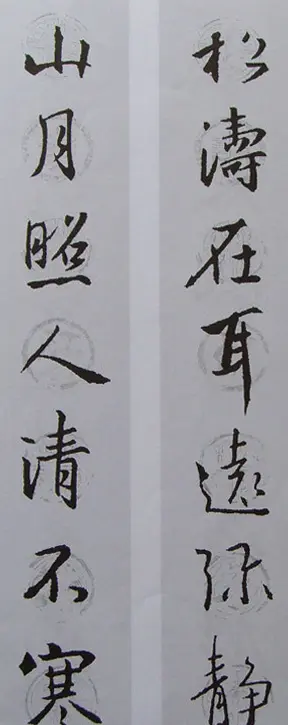 松濤在耳遠弥静
山月照人清不寒